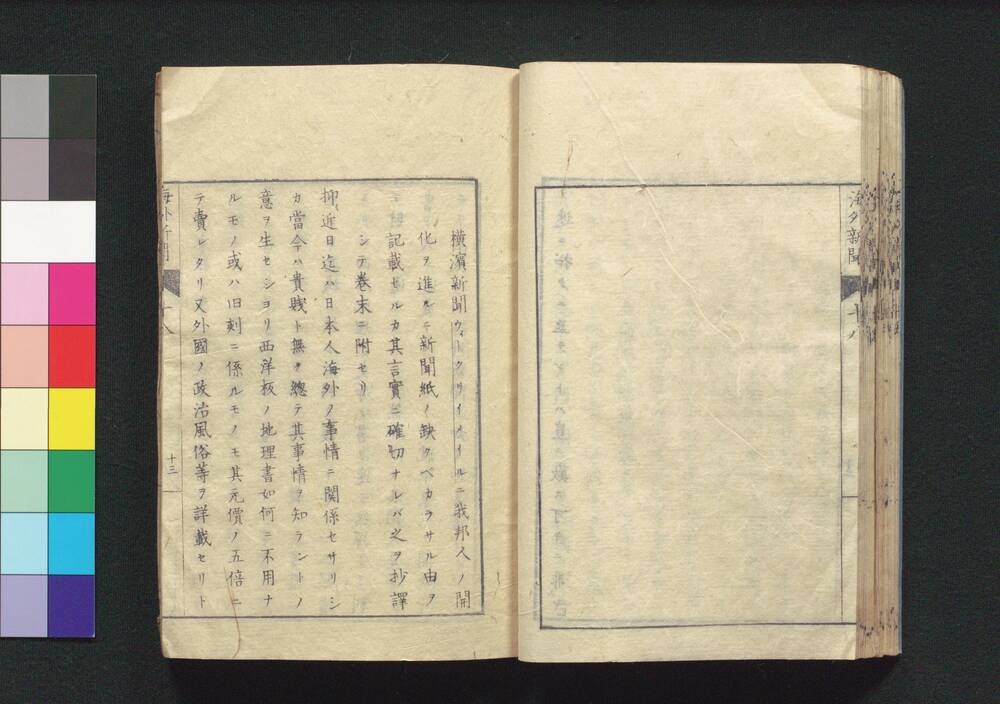 海外新聞
十八
横濱新聞ウィークリイメイルニ我邦人ノ開
化ヲ進ルニ新聞紙ノ缺クベカラサル由ヲ
記載セルカ其言實ニ確切ナレバ之ヲ抄譯
シテ巻末ニ附セリ
抑近日迄ハ日本人海外ノ事情ニ関係セサリシ
カ當今ハ貴賎ト無ク總テ其事情ヲ知ラントノ
意ヲ生セシヨリ西洋板ノ地理書如何ニ不用ナ
ルモノ或ハ旧刻ニ係ルモノモ其元價ノ五倍ニ
テ賣レタリ又外國ノ政治風俗等ヲ詳載セリト
海外新聞
十八
十三